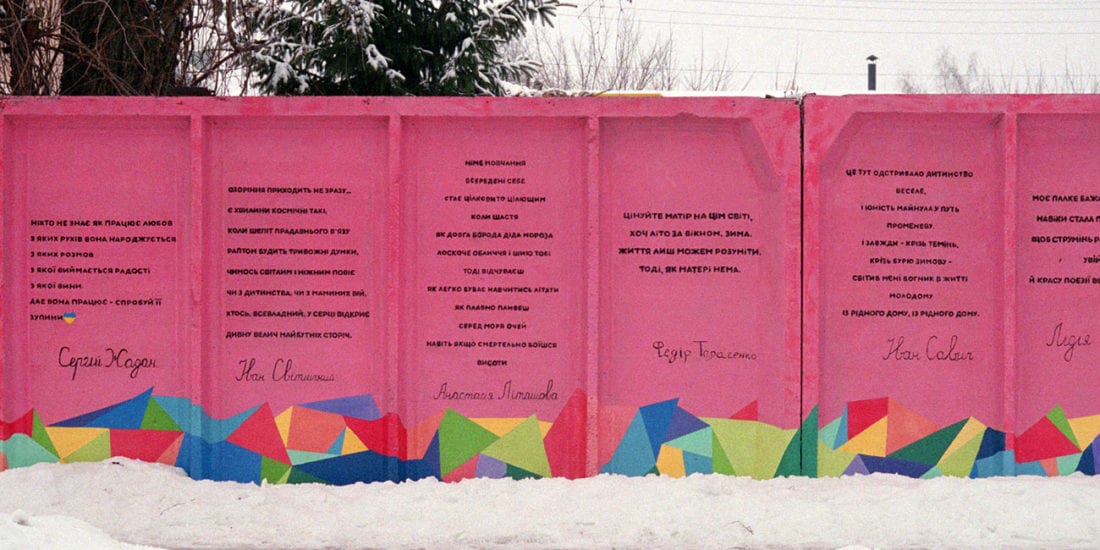 НІХТО НЕ ЗНАЄ ЯК ПРАЦЮЄ ЛЮБОВ
З ЯКИХ РУХІВ ВОНА НАРОДЖУЄТЬСЯ
З ЯКИХ РОЗМОВ
З ЯКОЇ ВИЙМАЄТЬСЯ РАДОСТІ
З ЯКОЇ ВИНИ
ДАЄ ВОНА ПРАЦЮЄ - СПРОБУЙ ЇЇ
ЗУПИНИ
Сергій Жадан
ОЗОРІННЯ ПРИХОДИТЬ НЕ ЗРАЗУ...
Є ХВИЛИНИ КОСМІЧНІ ТАКІ,
КОЛИ ШЕПІТ ПРАДАВНЬОГО В'ЯЗУ
РАПТОМ БУДИТЬ ТРИВОЖНІ ДУМКИ,
ЧИМОСЬ СВІТЛИМ І НІЖНИМ ПОВІЄ
ЧИ З ДИТИНСТВА, ЧИ З МАМИНИХ ВІЙ,
ХТОСЬ, ВСЕВЛАДНИЙ, У СЕРЦІ ВІДКРИЄ
ДИВНУ ВЕЛИЧ МАЙБУТНІХ СТОРІЧ.
Іван Світличний
НІМЕ МОВЧАННЯ
ВСЕРЕДИНІ СЕБЕ
СТАЄ ЦІЛКОМТО ЦІЛЮЩИМ
КОЛИ ЩАСТЯ
ЯК ДОВГА БОРОДА ДІДА МОРОЗА
ЛОСКОЧЕ ОБЛИЧЧЯ І ШИЮ ТОБІ
ТОДІ ВІДЧУВАЄШ
ЯК ЛЕГКО БУВАЄ НАВЧИТИСЬ ЛІТАТИ
ЯК ПЛАВНО ПЛИВЕШ
СЕРЕД МОРЯ ОЧЕЙ
НАВІТЬ ЯКЩО СМЕРТЕЛЬНО БОЇШСЯ
ВИСОТИ
Анастасія Літашова
ЦІНУЙТЕ МАТІР НА ЦІМ СВІТІ,
ХОЧ ЛІТО ЗА ВІКНОМ, ЗИМА.
ЖИТТЯ ЛИШ МОЖЕМ РОЗУМІТИ.
ТОДІ, ЯК МАТЕРІ НЕМА.
Федір Тарасенко
ЦЕ ТУТ ОДСТРИБАЛО ДИТИНСТВО
ВЕСЕЛЕ,
І ЮНІСТЬ МАЙНУЛА У ПУТЬ
ПРОМЕНЕВУ.
І ЗАВЖДИ - КРІЗЬ ТЕМІНЬ,
КРІЗЬ БУРЮ ЗИМОВУ -
СВІТИВ МЕНІ ВОГНИК В ЖИТТІ
МОЛОДОМУ
ІЗ РІДНОГО ДОМУ, ІЗ РІДНОГО ДОМУ.
Іван Савич
МОЄ ПАЛКЕ БАЖА
НАВІКИ СТАЛА П
ЩОБ СТРУМІНЬ Р
УВІЙ
Й КРАСУ ПОЕЗІЇ ВЕ
Лідія